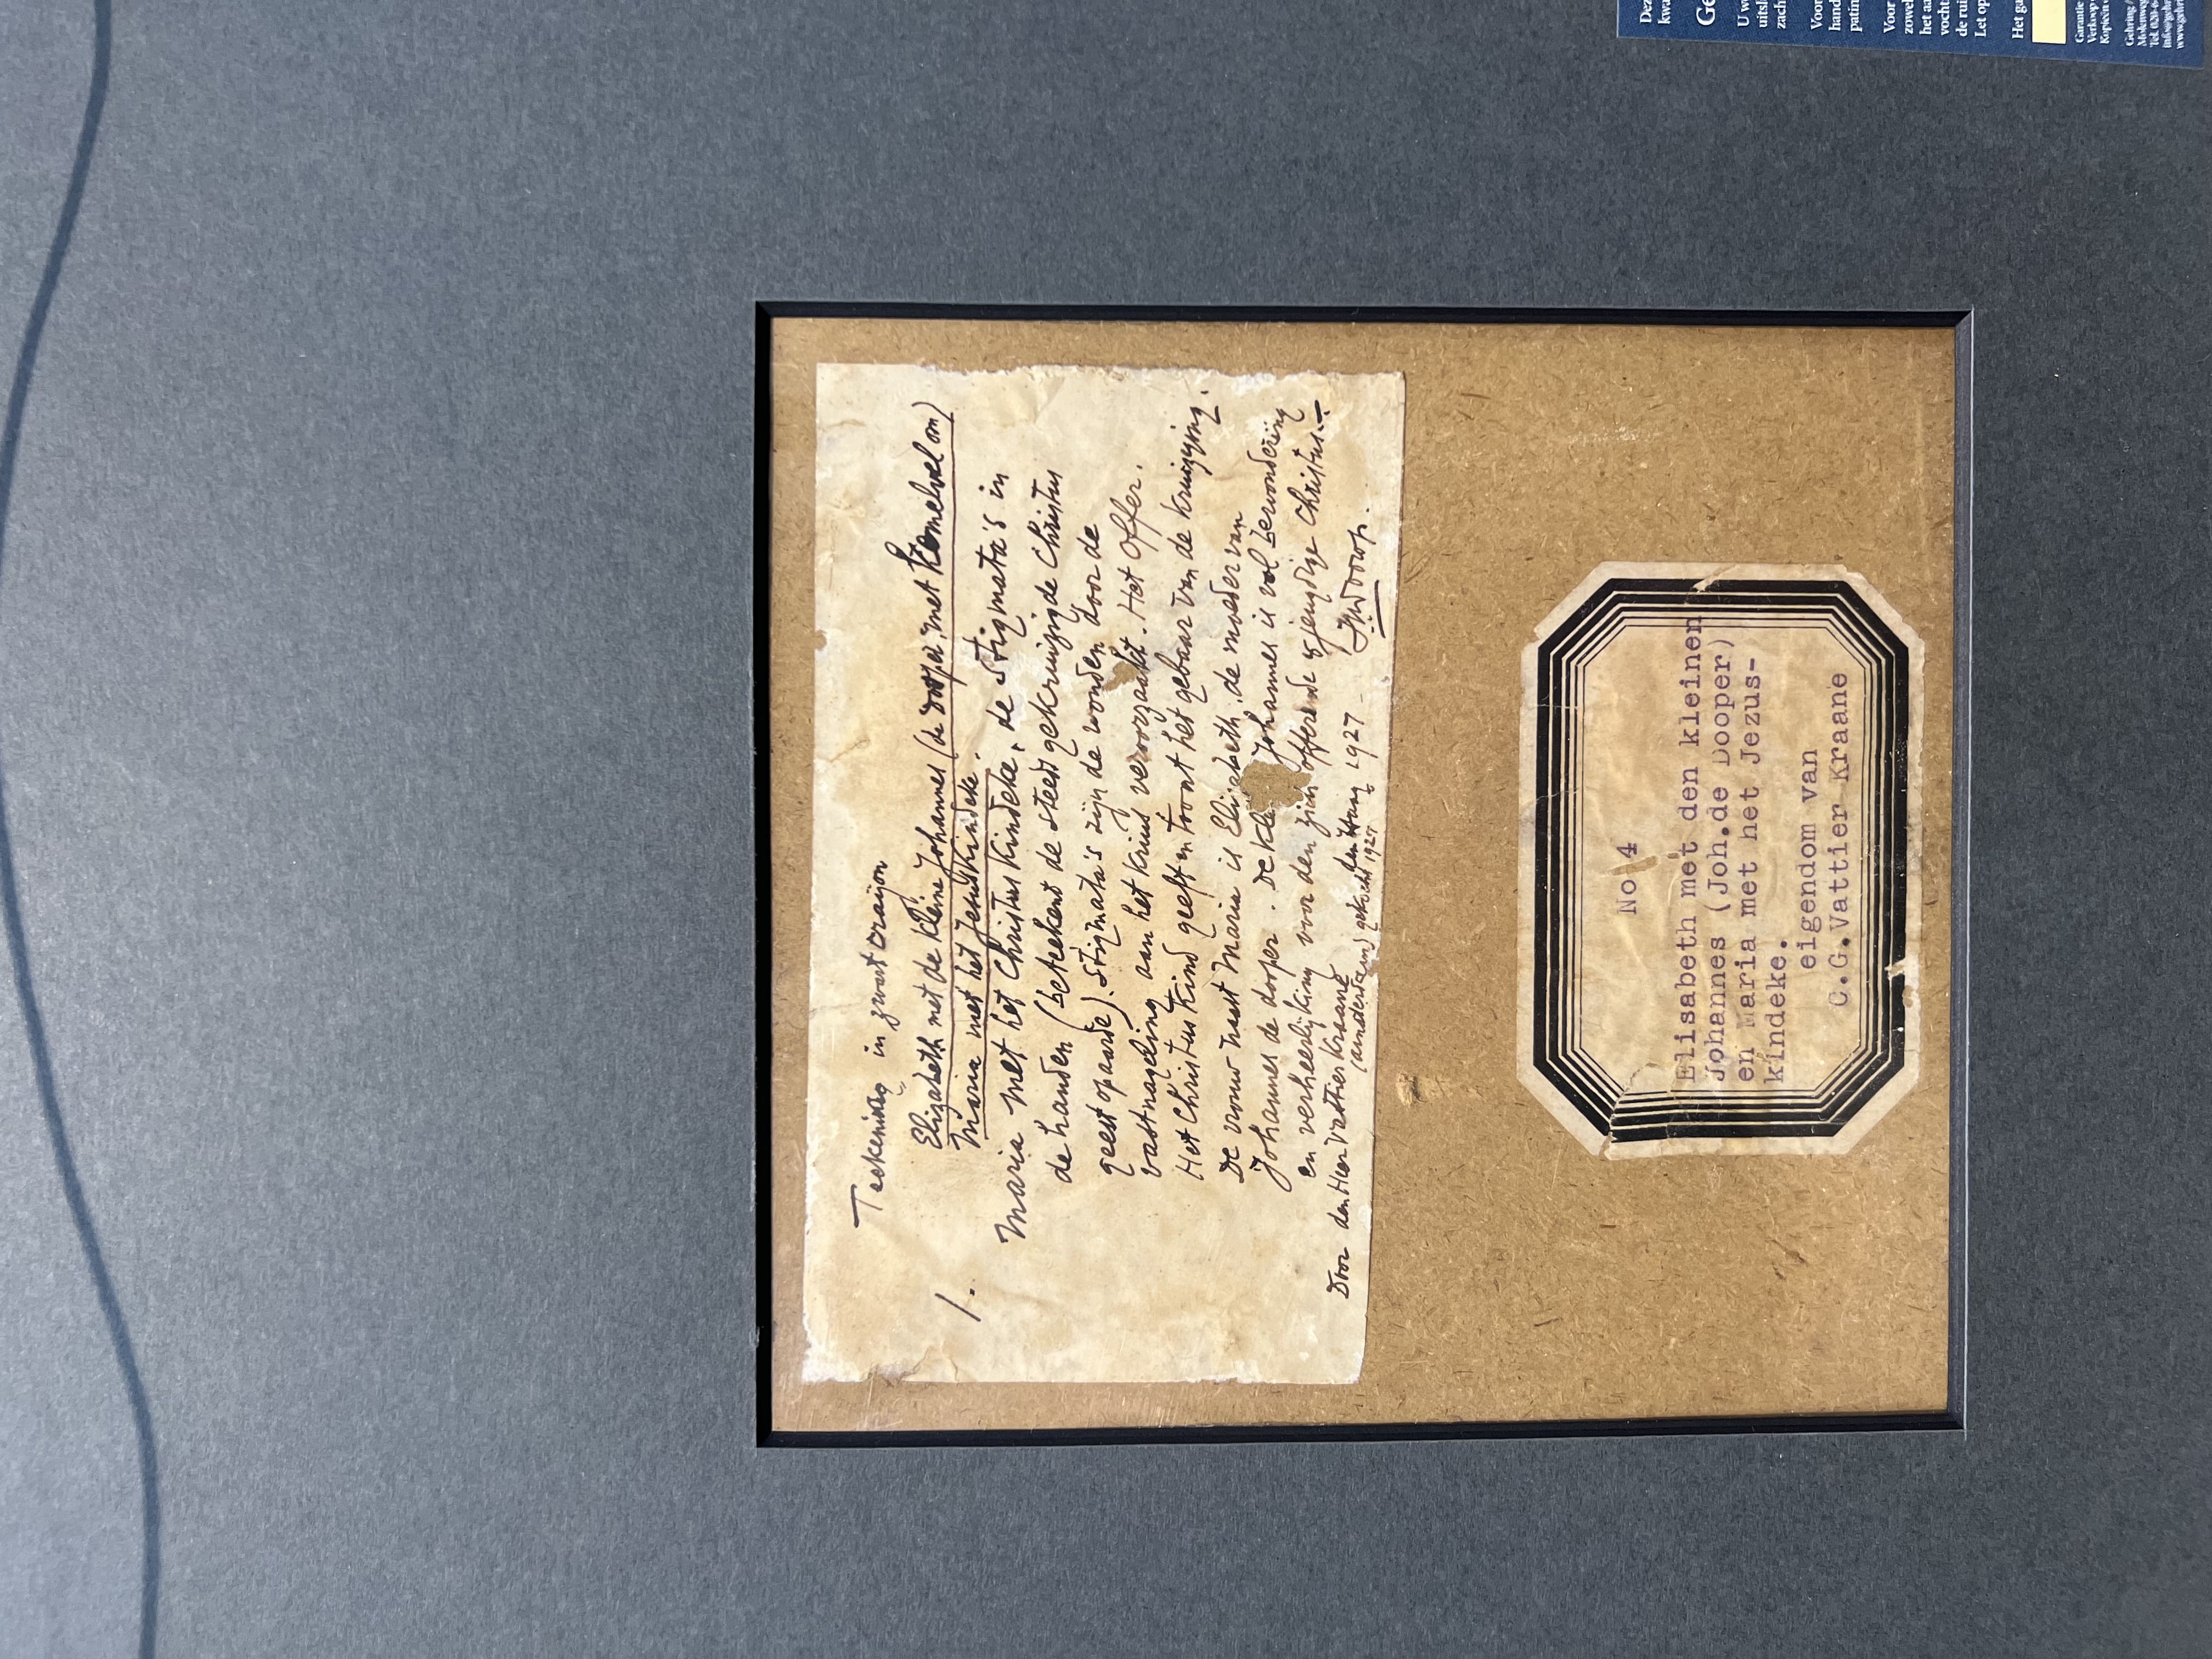 Teekening in zwart crayon
1.
Elizabeth met de kleine Johannes (de dooper, met Kemelvel om)
Maria met het Jesus Kindeke.
Maria met het Christus Kindeke, de stigmata's in
de handen (beteekent de steeds gekruizigde Christus
geest op aarde). Stigmata's zijn de wonden door de
vastnageling aan het kruis veroorzaakt. Het Offer.
Het Christus Kind geeft en toont het gebaar van de kruisiging.
De vrouw naast Maria is Elisabeth, de moeder van
Johannes de dooper. De kle Johannes is vol verwondering
en verheerlijking voor den zich offerende jeugdige Christus.
Door den Heer Vattier Kraane den Haag 1927 - JthToorop.
gekocht 1927
No 4
Elisabeth met den kleinen
Johannes (Joh.de Dooper)
en Maria met het Jezus-
kindeke.
eigendom van
C.G.Vattier Kraane
Dez
kwa
Ge
U we
uitsl
zach
Voor
hand
patin
Voor
zowel
het aa
vocht
de rui
Let op
Het ga
Garantie
Verkoop
Kopieën
Gehring
Molenweg
Tel. 020-6
info@gehr
www.gehri